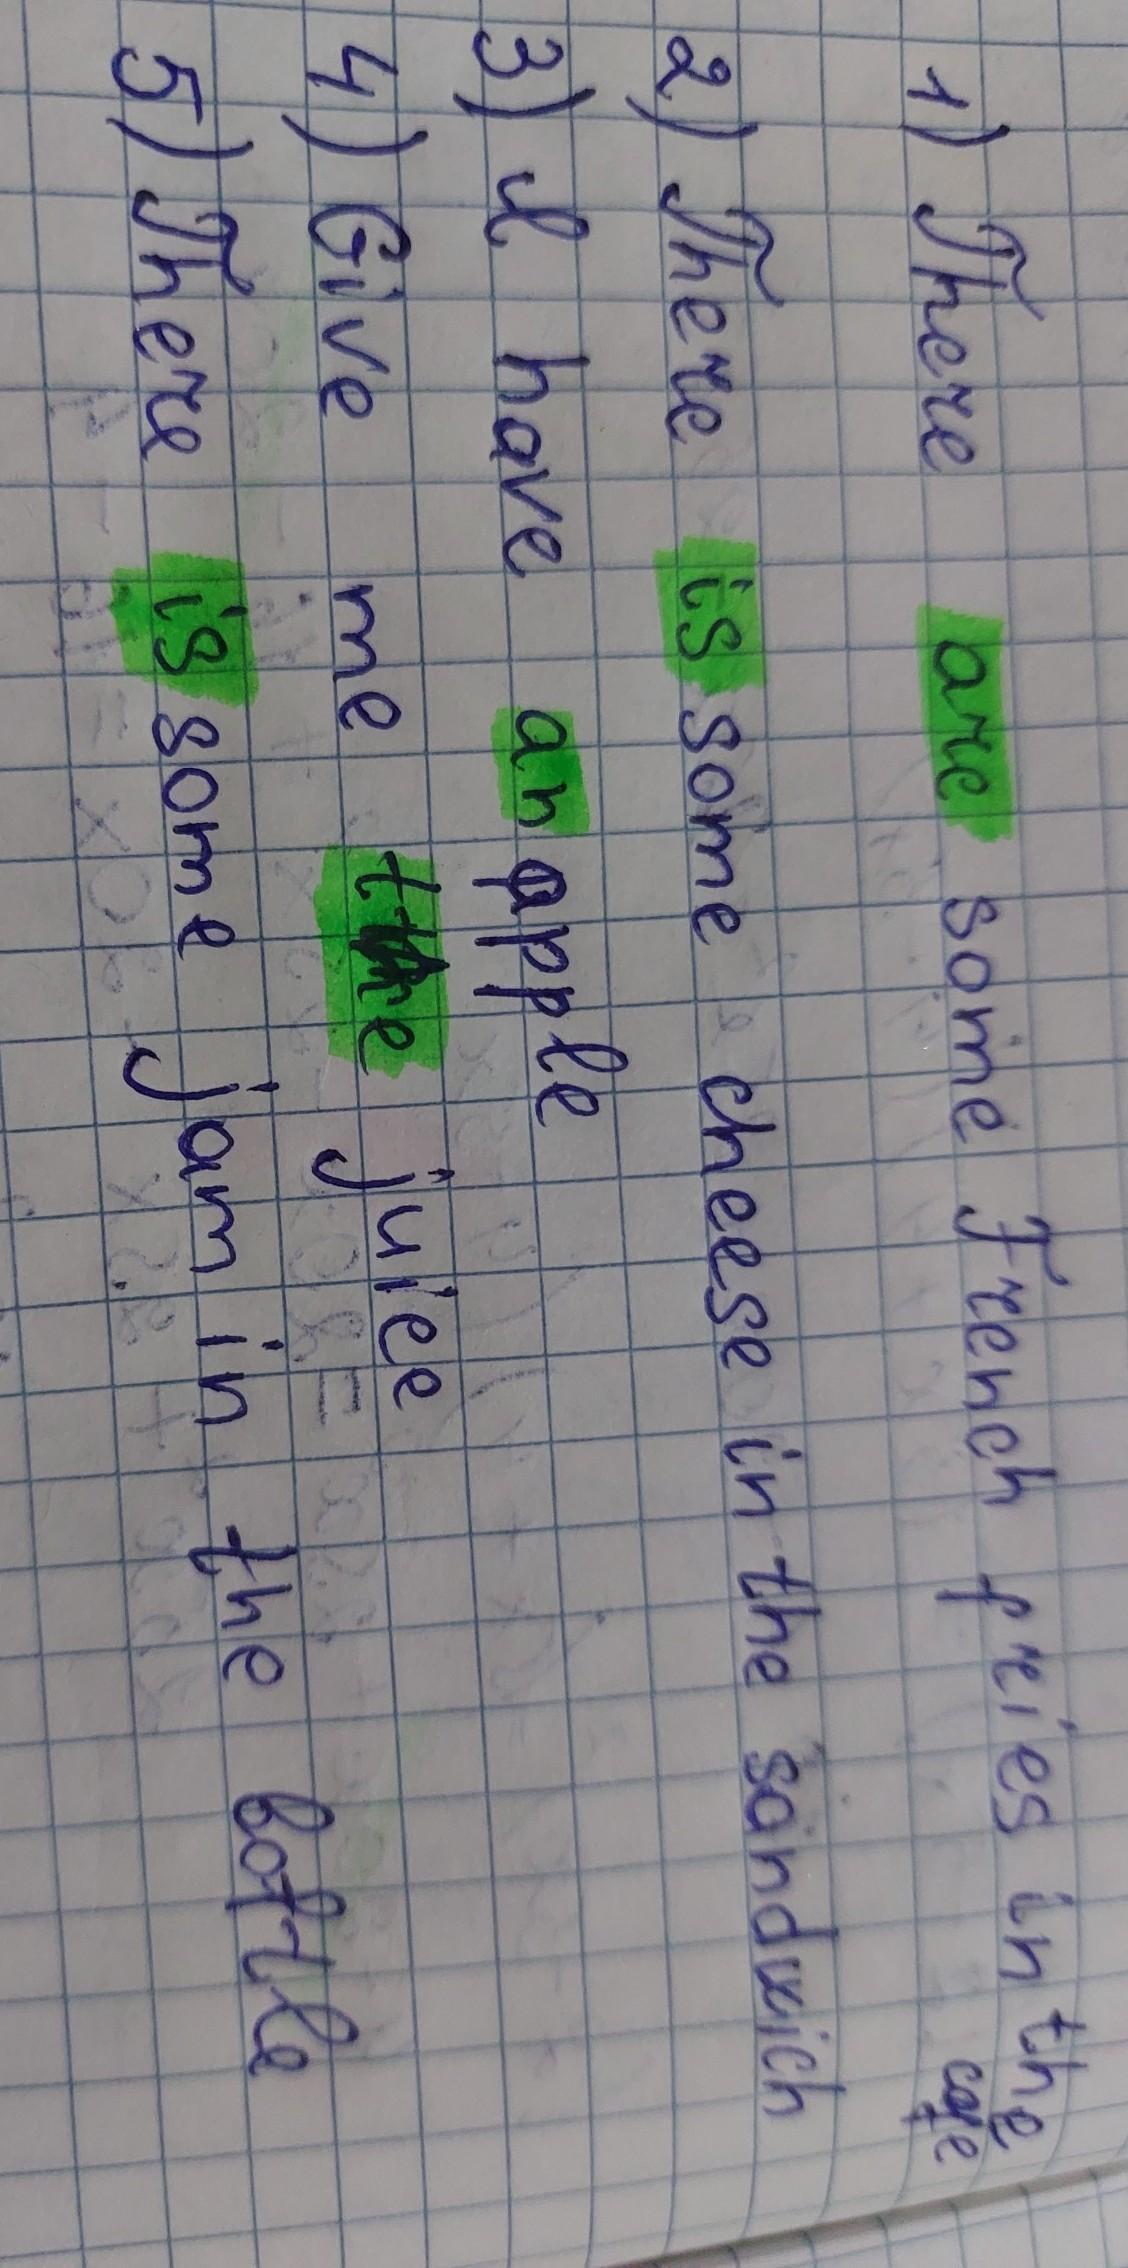 1) There are some French fries in the
cafe
2) There is some cheese in the sandwich
3) I have an apple
4) Give me the juice
5) There is some jam in the bottle